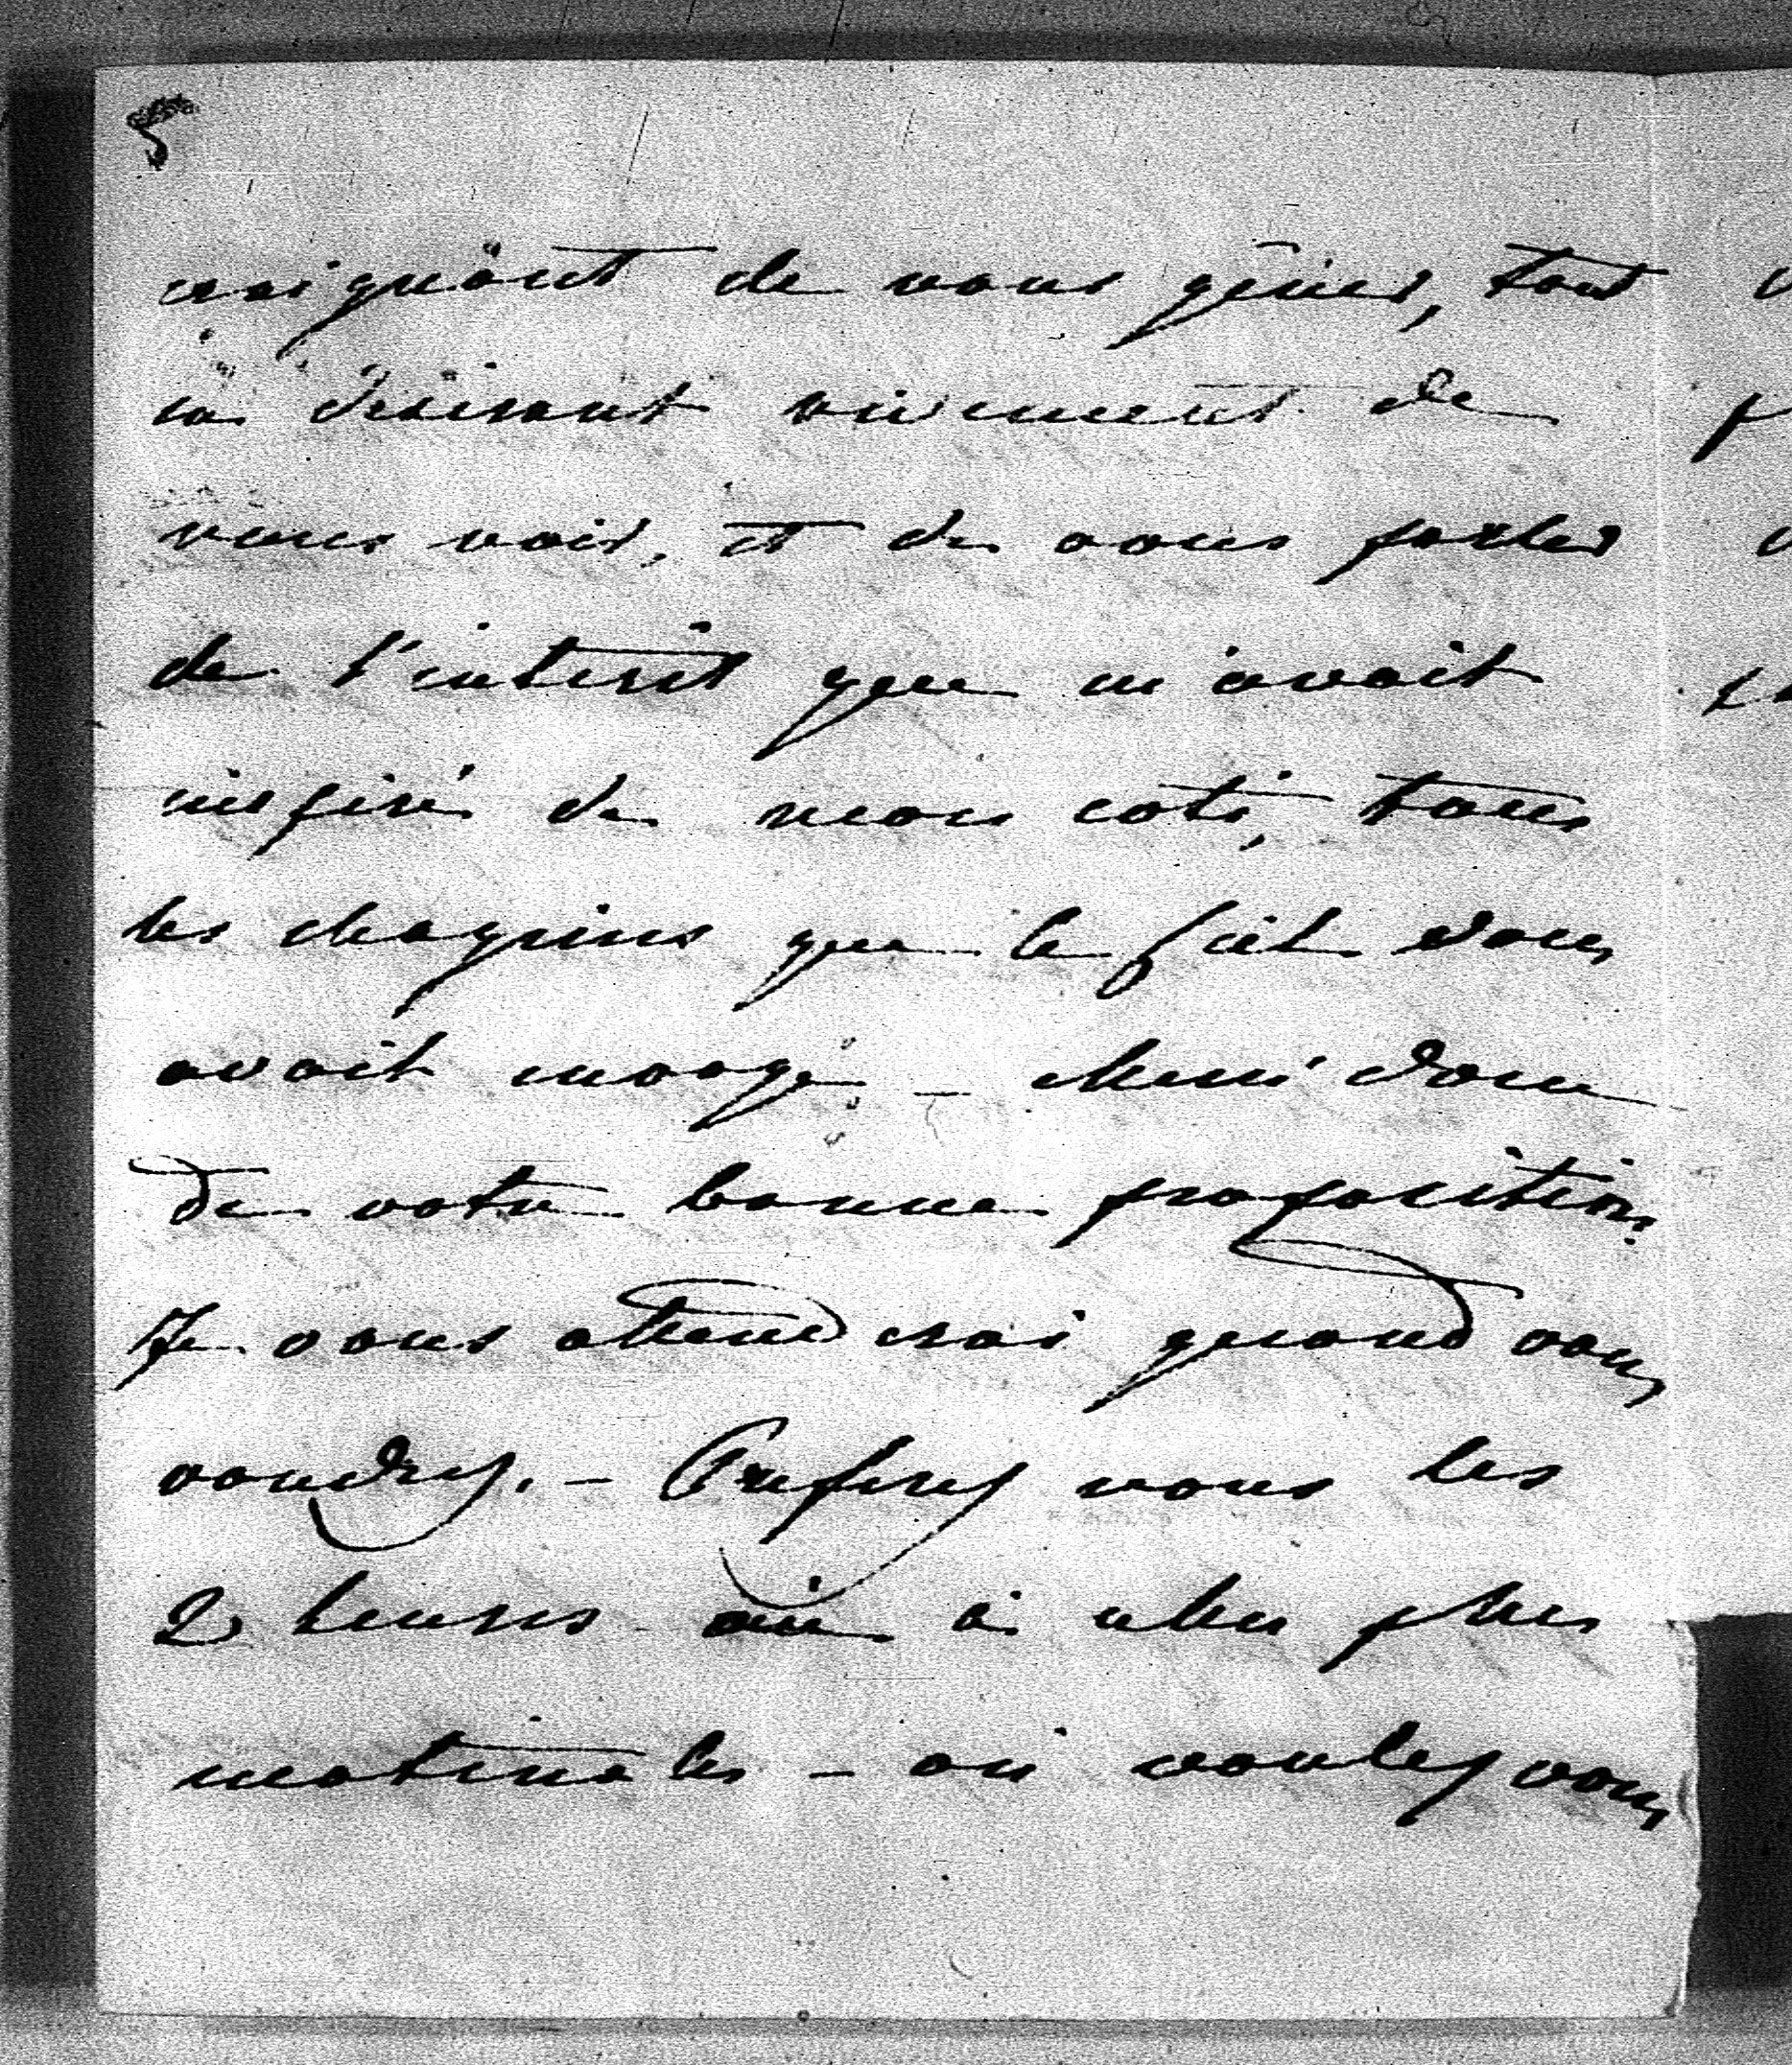 5
craignant de vous gêner, tout
en désirant vivement de
vous voir, et de vous parler
de l'intérêt que m'avait
inspiré de mon coté, tous
les chagrins que le ciel vous
avait envoyé – merci donc
de votre bonne proposition.
Je vous attendrai quand vous
voudrez. – Préférez vous les
2 heures ou à plus
matinales – où voulez vous